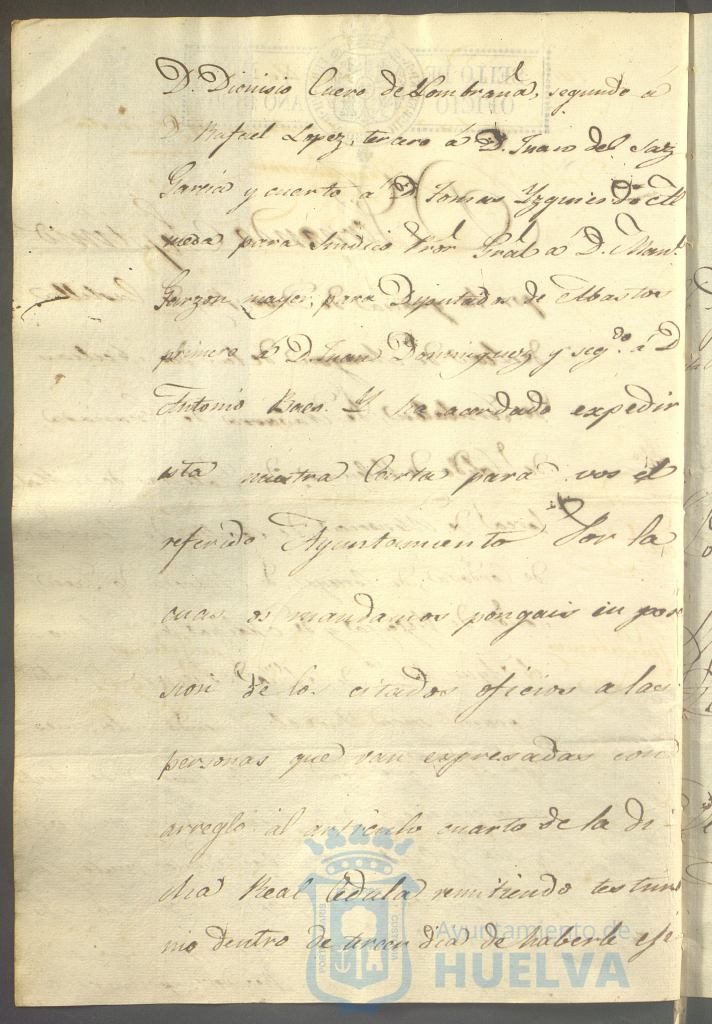 Dn. Dionisio Cuero de Lombraña, segundo á
D Rafael Lopez, tercero á D. Juan del Saz
Garcia y cuarto a D Tomas Yzquierdo
para Sindico Pror. Gral. á D. Manl.
Garzon mayor, para Diputados de Abastos
primero á D. Juan Dominguez y segdo. á D
Antonio Baes. Y ha acordado expedir
esta nuestra Carta para vos el
referido Ayuntamiento Por la
cual os mandamos pongais en pose
sion de los citados oficios a las
personas que van expresadas con
arreglo al articulo cuarto de la di
cha Real Cedula remitiendo testimo
nio dentro de tercer dia de haberle
Ayuntamiento de
HUELVA